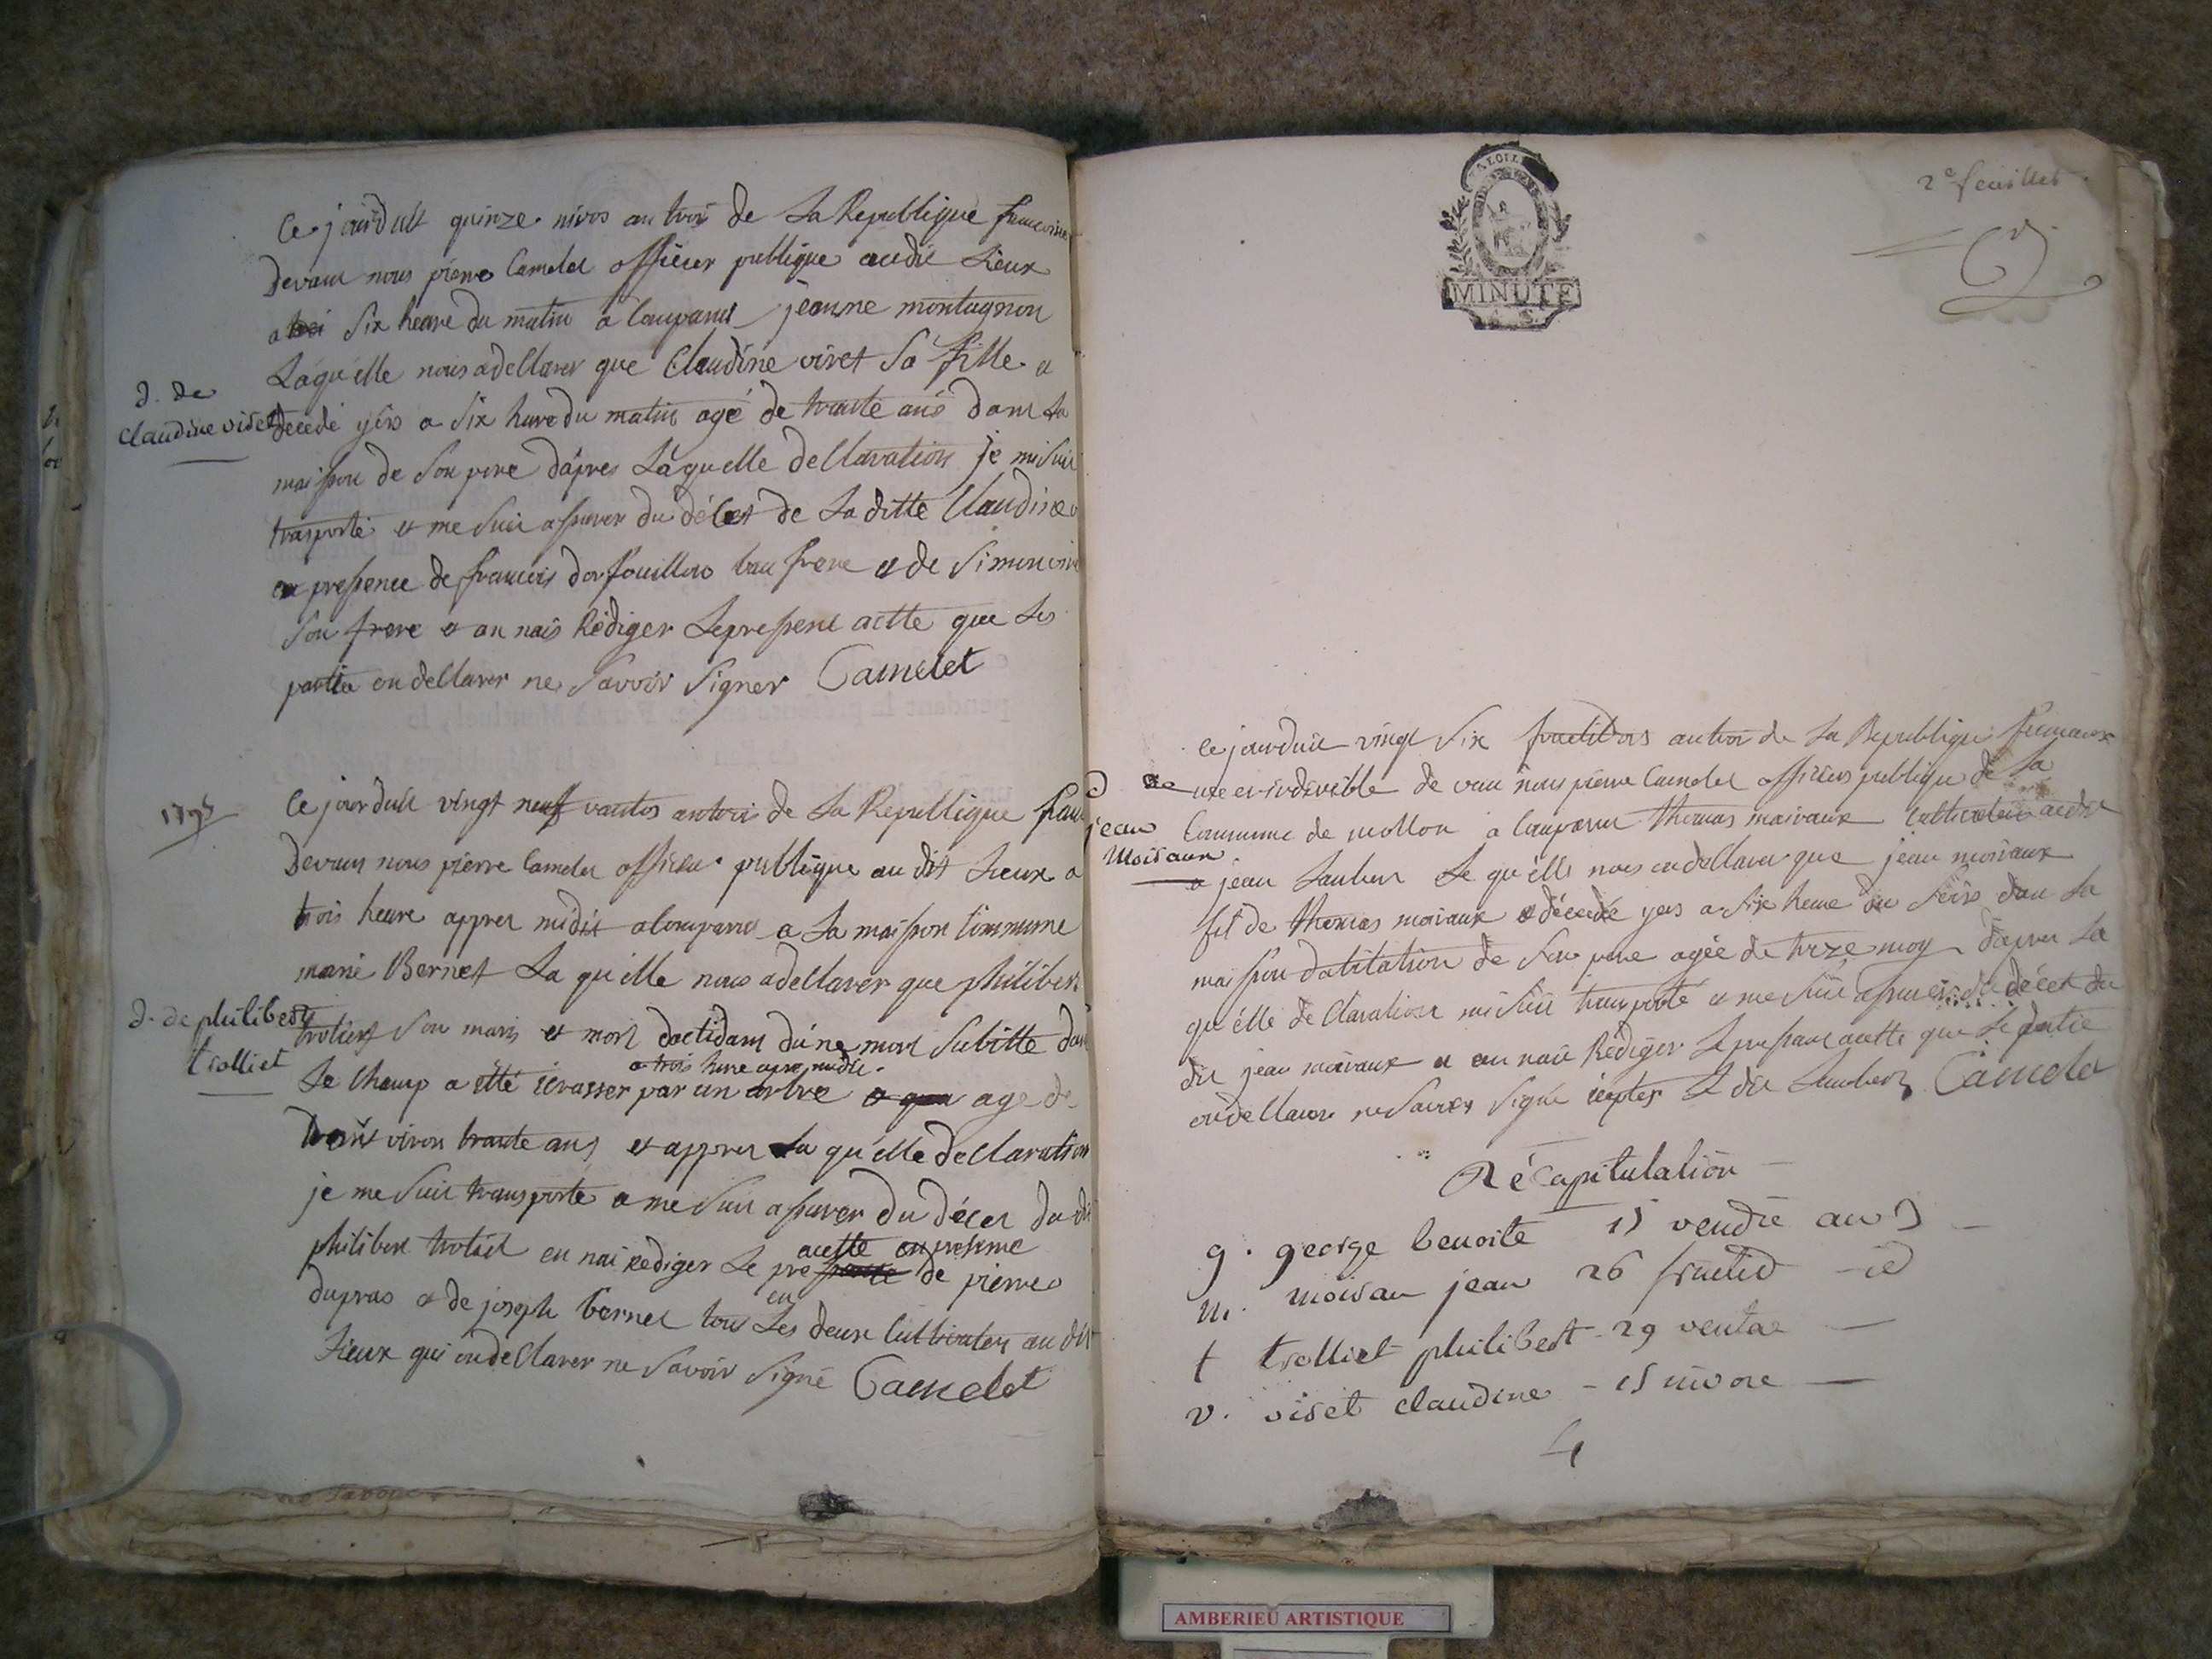 Ce jourduit quinze nivos an troi de La Republique francoise
Devant nous pierre Camelet officier publique audit Lieux
a six heure du matin a Comparus jeanne montagnon
Laquelle nous a dellarer que Claudine viret Sa fille a
d. de
Claudine viret
decedé yers a six heure du matin agé de trante ans dans La
maison de Son pere d'apres Laquelle dellaration je mi suis
trasporté et me suis assurer du décet de La ditte Claudine
en presence de francois dorfouillou bau frere et de Simon viret
Son frere et an nais Rédiger Le present actte que Les
partie on dellarer ne Savoir Signer Camelet
1795
Ce jourduit vingt neuf vantos an troi de La Republique franc
Devant nous pierre Camelet officier publique au dit Lieux a
trois heure appres midit a Comparus a La maison Commune
marie Bernet La quelle nous a dellarer que philibert
d. de philibert
trolliet
troliet Son maris et mort dactidans dune mort Subitte dans
a trois heure apre midit
Le Champ a été ecrasser par un arbre agé de
viron trante ans et appres La quelle dellaration
je me suis transporté a me suis assurer du décet du dit
philibert troliet en nai rediger Le
actte en presence
de pierre
dupras et de joseph bernet tous Les deux Cultivateur au dit
Lieux qui on dellarer ne Savoir Signé Camelet
MINUTE
2e feuillet
Ce jourduit vingt Six fructidors an troi de La Republique francaise
une et indivisible de vant nous pierre Camelet officiers publique de La
D de
jean
Moiraux
Commune de mollon a Comparu thomas moiraux Cultivateur audit
a jean Laubert Le quelle nous on dellarer que jean moiraux
fit de thomas moiraux et décédé yers a Six heure du Soir dans La
maison datitation de Son pere agée de treze moy d'apres La
quélle de Claration mi suis transporté et me suis assurer du décet du
dit jean moiraux et an nais Rediger Le present actte que Le partie
on dellarer ne Savoir Signé Le dit Laubert Camelet
Récapitulation
g. george benoite 15 vendre an 3
m. moirau jean 26 fructid id
t trolliet philibert 29 ventose
v. viret claudine 15 nivose
4
AMBERIEU ARTISTIQUE